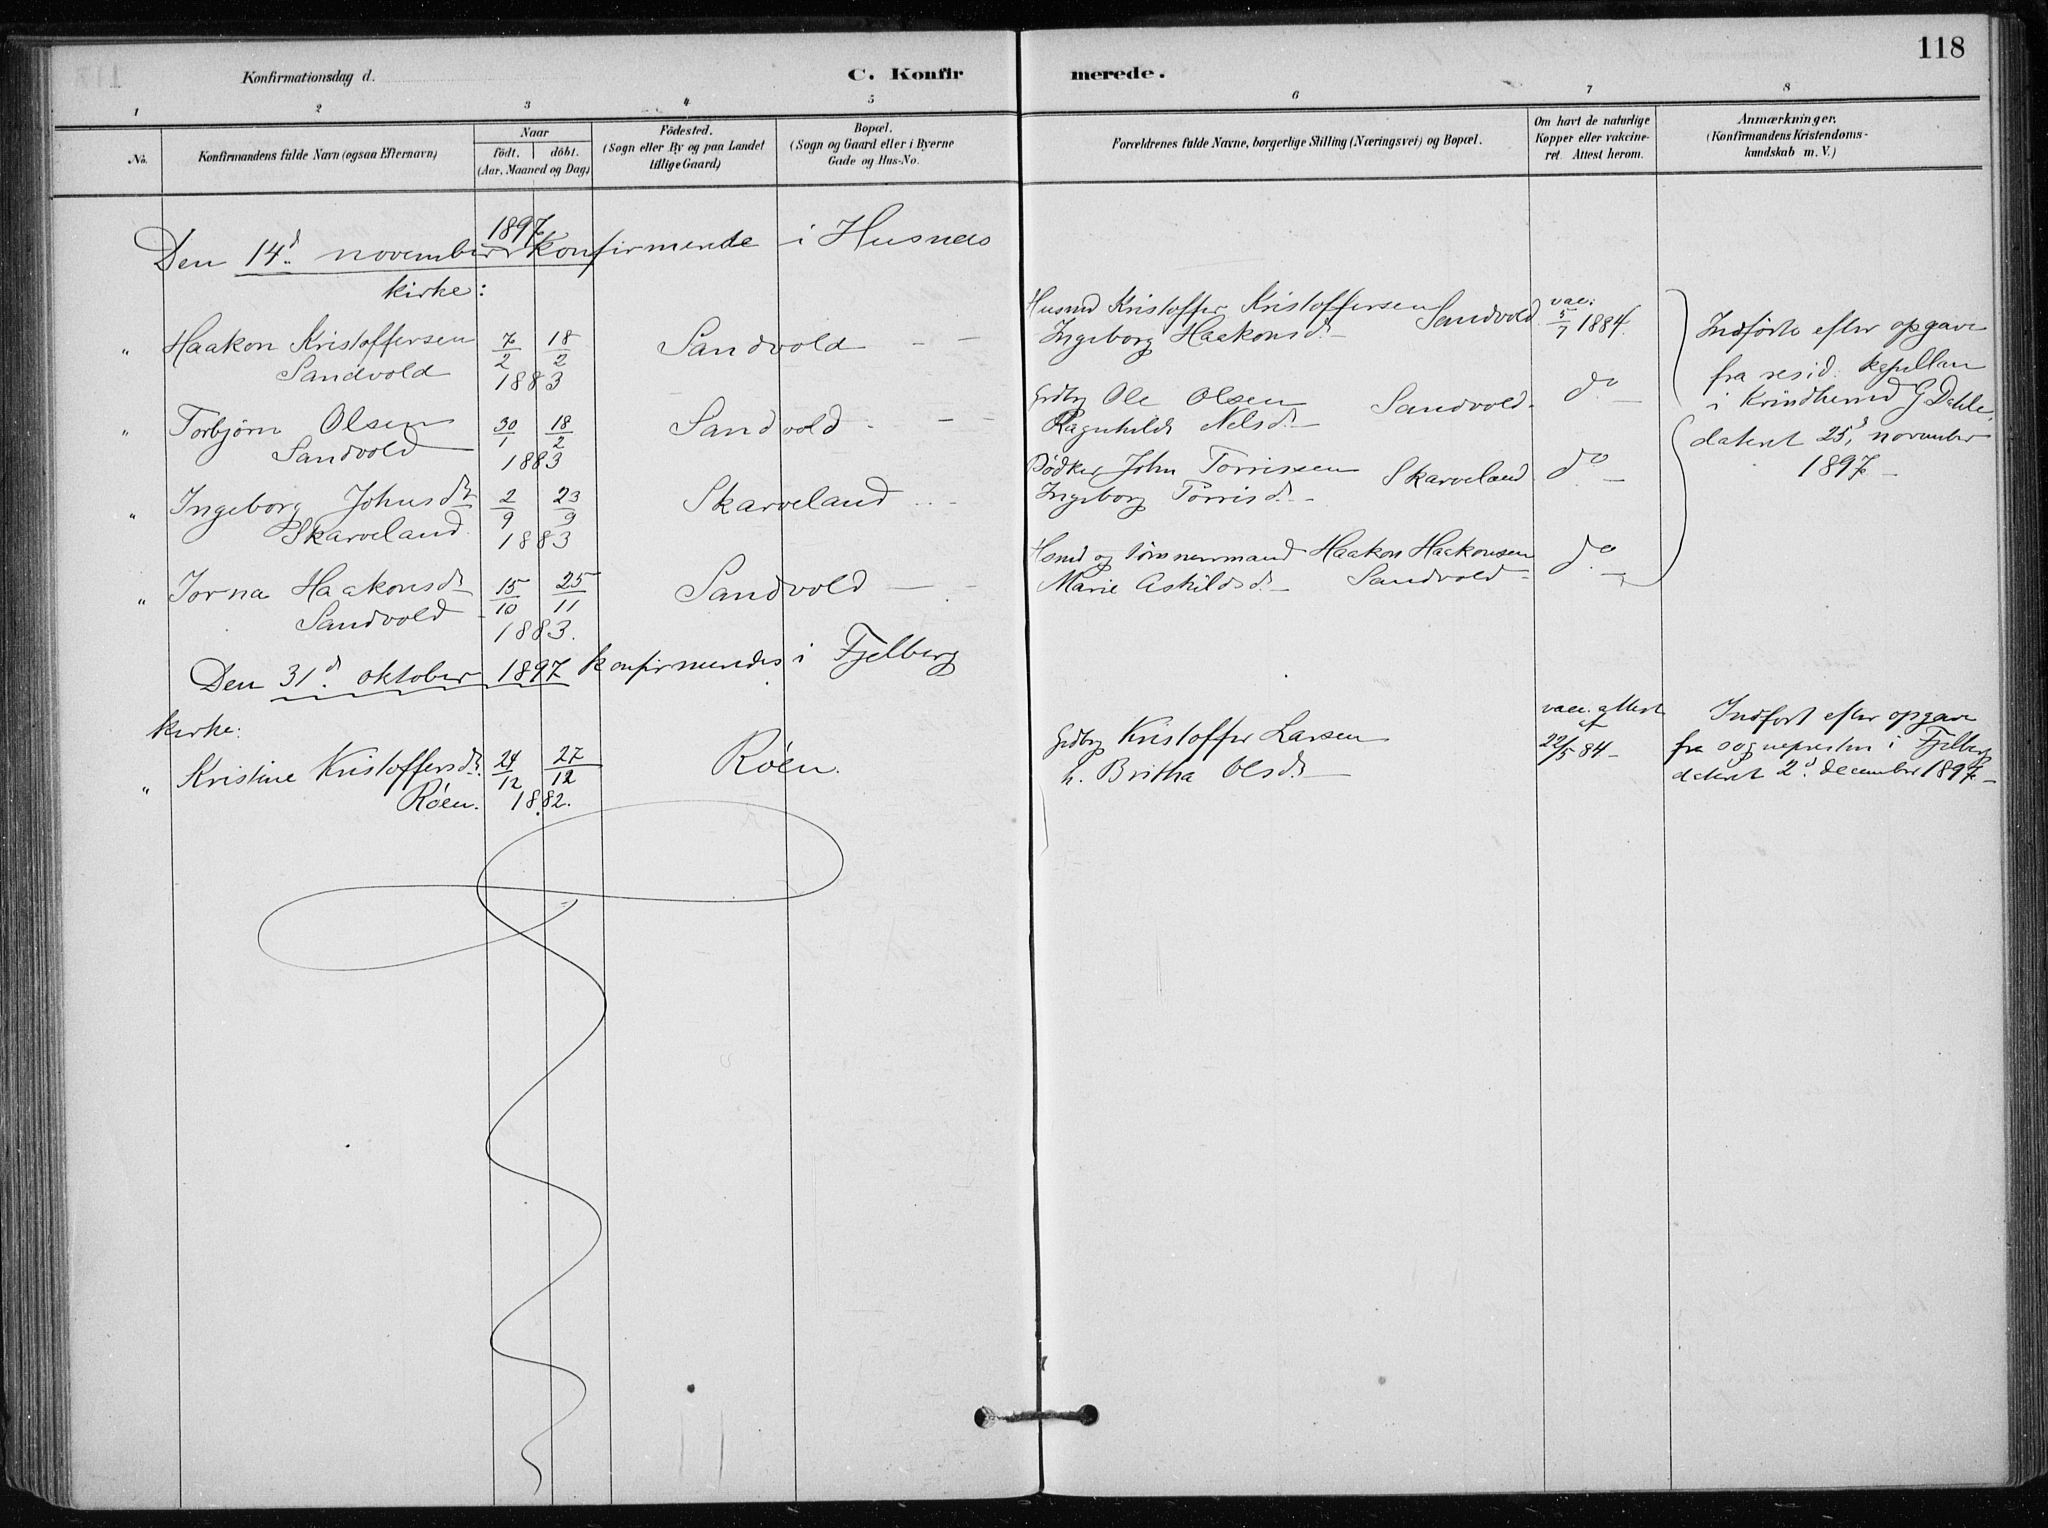 118
Konfirmationsdag d.
C. Konfirmerede.
1 2 3 4 5 6 7 8
No.
Konfirmandens fulde Navn (ogsaa Efternavn)
Naar
födt. döbt.
(Aar, Maaned og Dag)
Födested.
(Sogn eller By og paa Landet
tillige Gaard)
Bopæl.
(Sogn og Gaard eller i Byerne
Gade og Hus-No.
Forældrenes fulde Navne, borgerlige Stilling (Næringsvei) og Bopæl.
Om havt de naturlige
Kopper eller vakcine-
ret. Attest herom.
Anmærkninger.
(Konfirmandens Kristendoms-
kundskab m. V.)
Den 14d. november 1897 konfirmerede i Husnes
kirke:
" Haakon Kristoffersen 7/2 18/2 Sandvold - - Husmd Kristoffer Kristoffersen Sandvold vac: 5/7 1884.
Sandvold 1883 Ingeborg Haakonsd. -
Indförte efter opgave
fra resid. kapellan
i Kvindherred G Dahle,
dateret 25d. november
1897 -
" Torbjörn Olsen 30/1 18/2 Sandvold - - Grdbr Ole Olsen Sandvold - do -
Sandvold 1883 Ragnhilde Nelsd. -
" Ingeborg Johnsdtr 2/9 23/9 Skarveland - - Bödker John Torrissen Skarveland. do -
Skarveland. 1883 Ingeborg Torrisd. -
" Jorna Haakonsd. 15/10 25/11 Sandvold - - Husmd og tömmermand Haakon Haakonsen do -
Sandvold 1883. Marie Askildsd. - Sandvold -
Den 31d. oktober 1897 konfirmeredes i Fjelberg
kirke:
" Kristine Kristoffersd. 24/12 27/12 Röen. Grdbr Kristoffer Larsen vacc. attest
af
22/5 84 -
Röen. 1882. h. Britha Olsd. -
Indfört efter opgave
fra sognepresten i Fjelberg
dateret 2d. december 1897 -